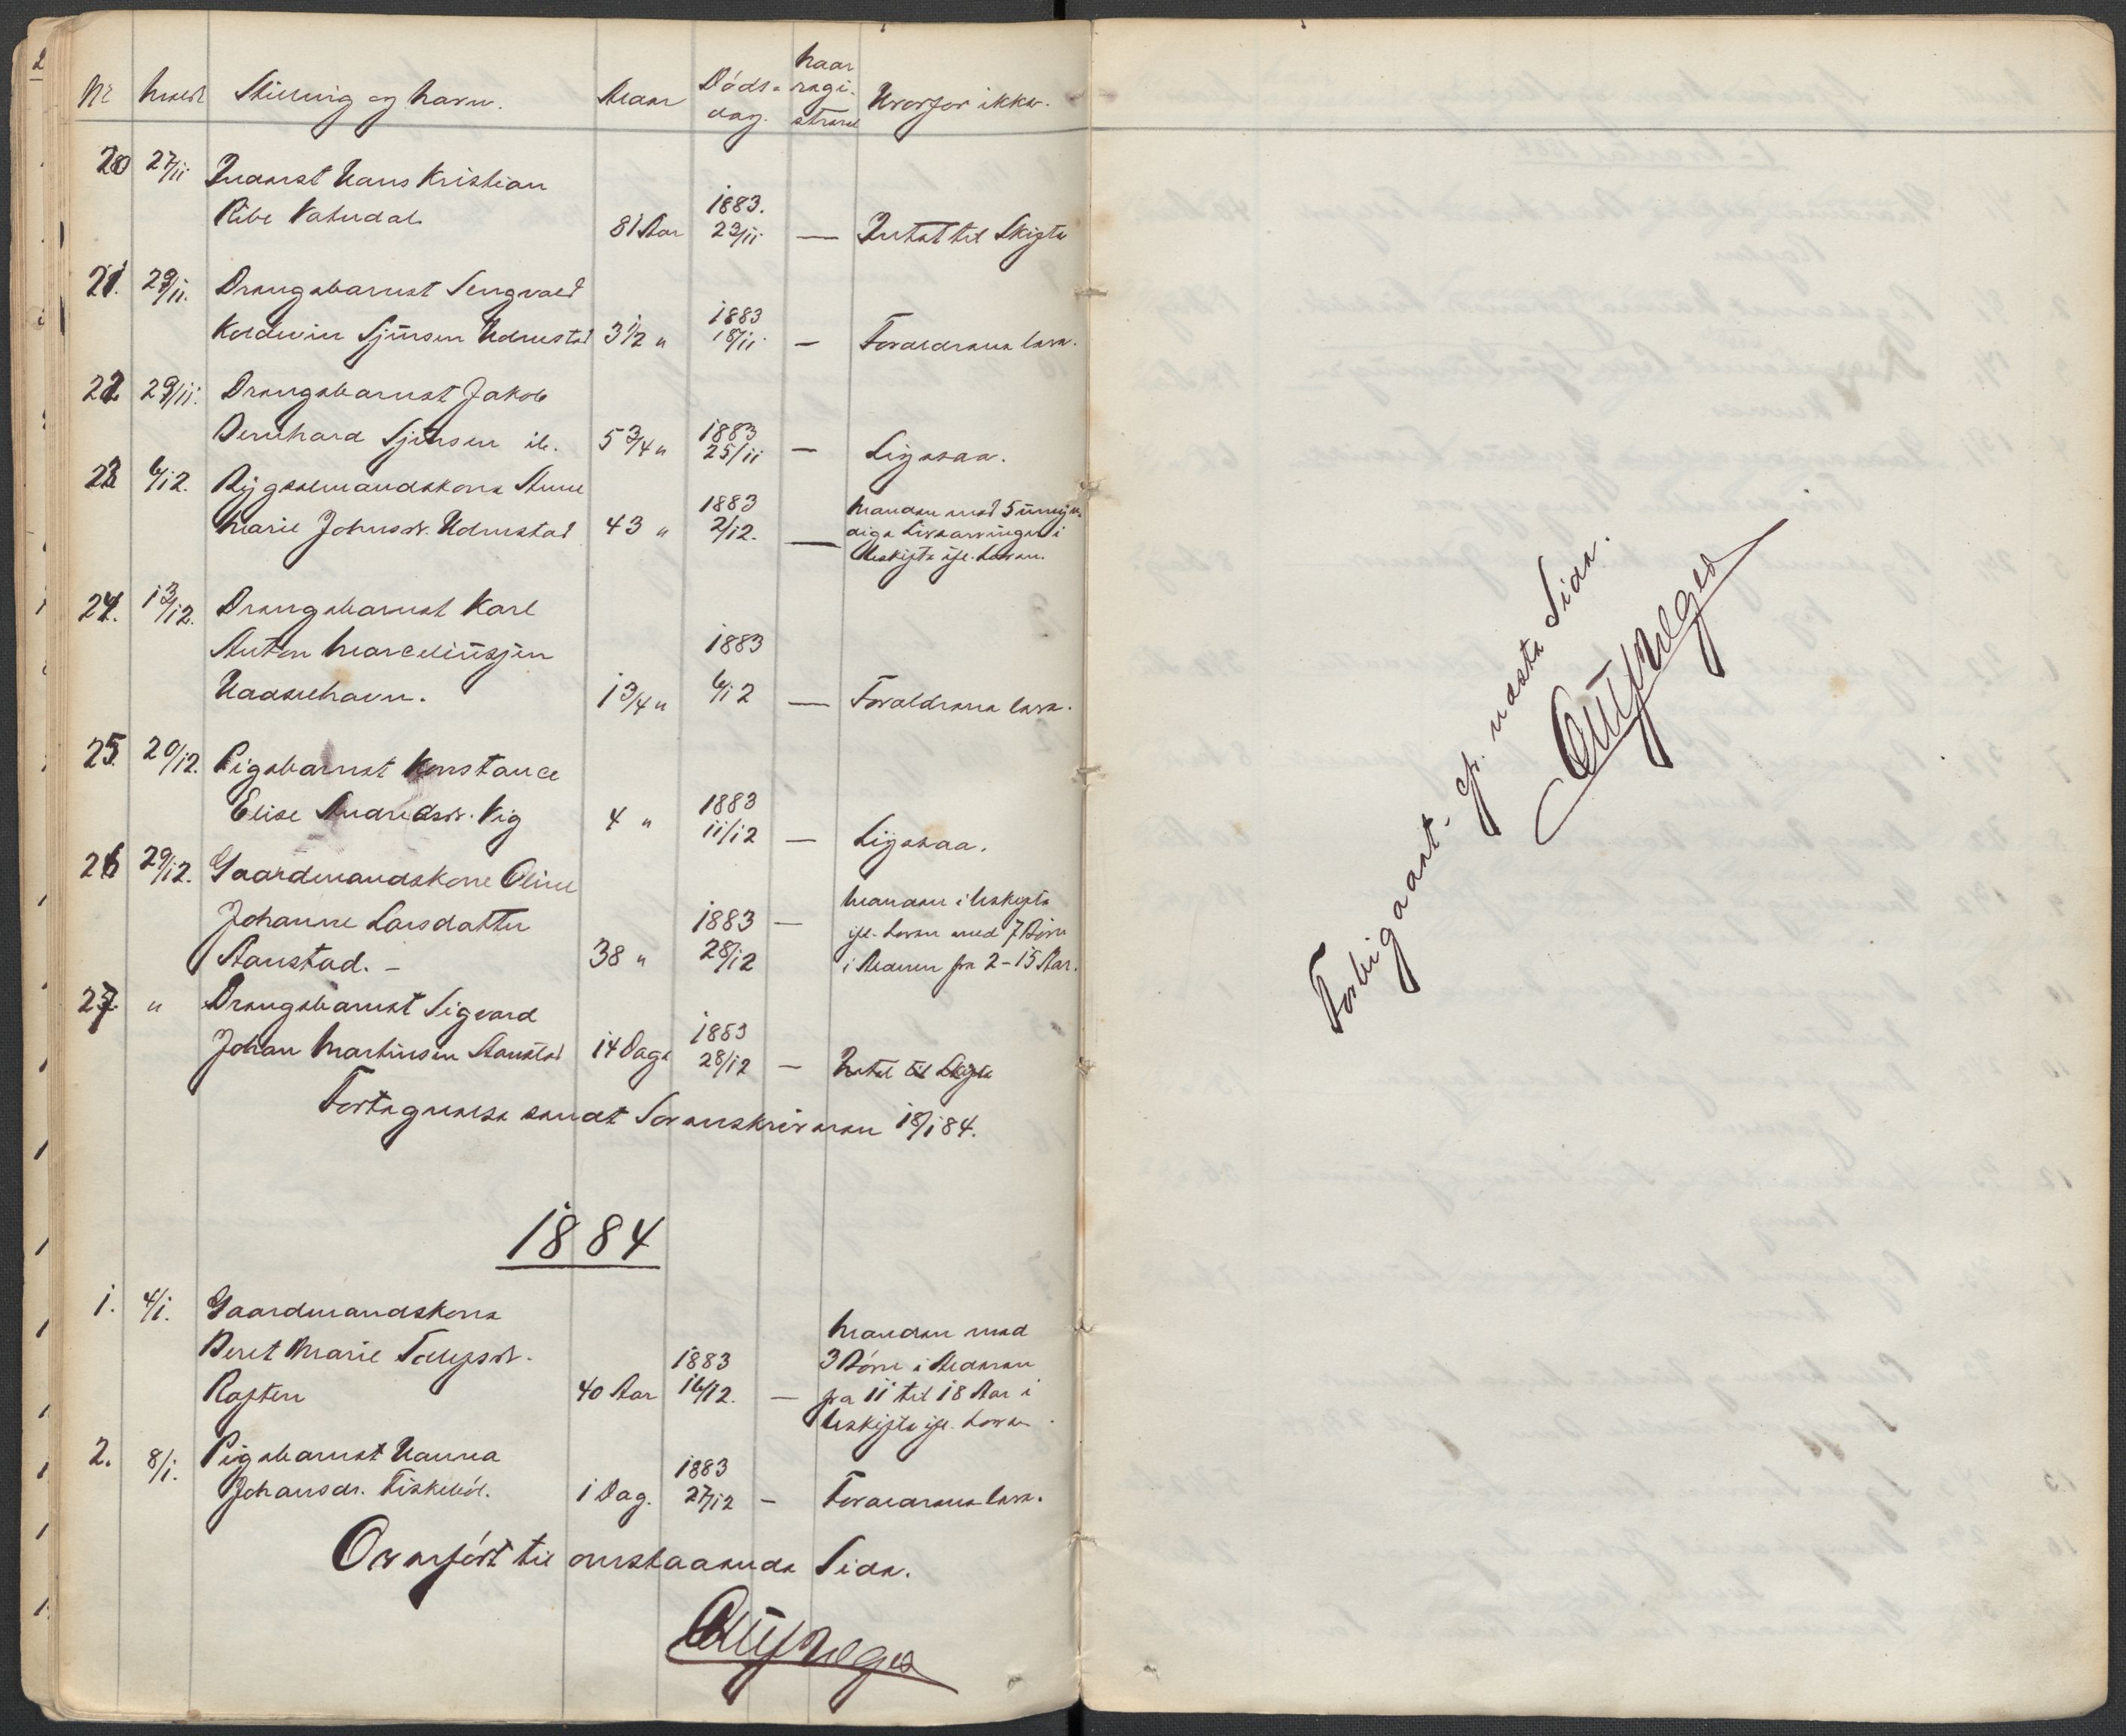 Nr Meldt Stilling og Navn. Alder Døds- dag. Naar regi- streret Hvorfor ikke.
20 27/11 Inderst Hans Kristian
Ribe Vatndal. 81 Aar 1883. 23/11 — Intet til Skifte
21. 29/11. Drengebarnet
Sjursen Udnestad 3 1/2 " 1883 18/11 — Forældrene leve.
22 29/11. Drengebarnet Jakob
Bernhard Sjursen ib. 5 3/4 " 1883 25/11 — Ligesaa.
23 6/12. Rygselmandskone Anne
Marie Johnsdr. Udnestad 43 " 1883 2/12. — Manden med 5 umyn-
dige Livsarvinger i
Uskifte ifl. Loven.
24. 13/12. Drengebarnet Karl
Anton Marceliussen
Haasehavn. 1 3/4 " 1883 6/12 — Forældrene leve.
25. 20/12. Pigebarnet Konstance
Elise Andreasdr. Vig 4 " 1883 11/12 — Ligesaa.
26 29/12. Gaardmandskone Oline
Johanne Larsdatter
Aanstad. — 38 " 1883 28/12 — Manden i Uskifte
ifl. Loven med 7 Børn
i Alderen fra 2-15 Aar.
27. " Drengebarnet Sigvard
Johan Martinsen Aanstad 14 Dage 1883 28/12 — Intet til Skifte
Fortegnelse sendt Sorenskriveren 18/1 84.
1884
1. 4/1. Gaardmandskone
Beret Marie
Raften 40 Aar 1883 16/12. — Manden med
3 Børn i Alderen
fra 11 til 18 Aar i
Uskifte ifl. Loven.
2. 8/1. Pigebarnet Hanna
Johansdr. Fiskebøl. 1 Dag. 1883 27/12 — Forældrene leve.
Overført til omstaaende Side.
Forbigaaet. cfr. næste Side.